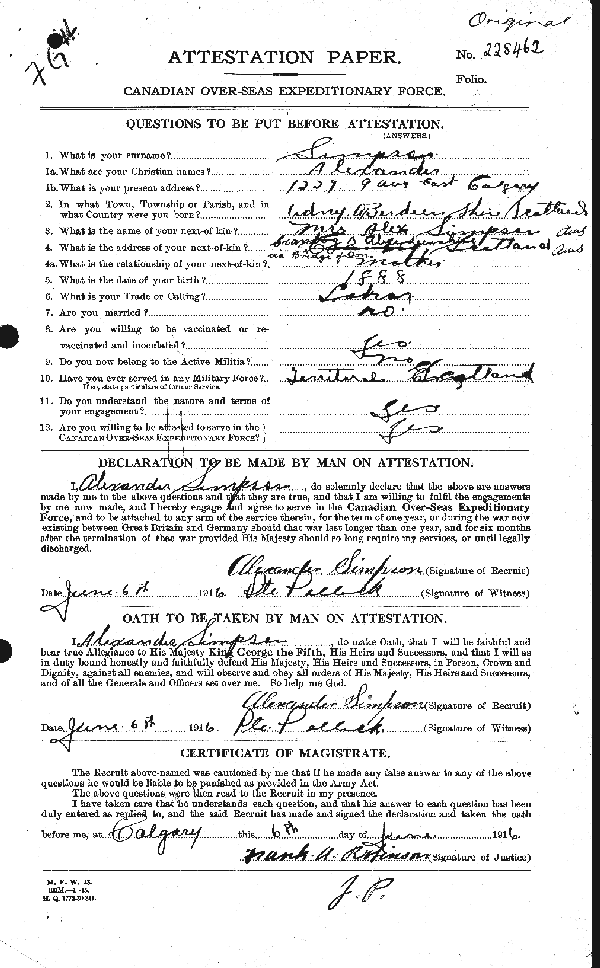 Original
ATTESTATION PAPER.
No. 228462
Folio.
CANADIAN OVER-SEAS EXPEDITIONARY FORCE.
QUESTIONS TO BE PUT BEFORE ATTESTATION.
(ANSWERS)
1. What is your surname? Simpson
1a. What are your Christian names? Alexander
1b. What is your present address? 1227 9 ave East Calgary
2. In what Town, Township or Parish, and in
what Country were you born? Aberdeen Shire Scotland
3. What is the name of your next-of-kin? Mrs Alex Simpson
4. What is the address of your next-of-kin? Scotland
4a. What is the relationship of your next-of-kin? Mother
5. What is the date of your birth? 1888
6. What is your Trade or Calling?
7. Are you married? no.
8. Are you willing to be vaccinated or re-
vaccinated and inoculated? Yes
9. Do you now belong to the Active Militia? no
10. Have you ever served in any Military Force? Territorial Scotland
11. Do you understand the nature and terms of
your engagement? Yes
12. Are you willing to be attested to serve in the
CANADIAN OVER-SEAS EXPEDITIONARY FORCE? Yes
DECLARATION TO BE MADE BY MAN ON ATTESTATION.
I, Alexander Simpson, do solemnly declare that the above are answers
made by me to the above questions and that they are true, and that I am willing to fulfil the engagements
by me now made, and I hereby engage and agree to serve in the Canadian Over-Seas Expeditionary
Force, and to be attached to any arm of the service therein, for the term of one year, or during the war now
existing between Great Britain and Germany should that war last longer than one year, and for six months
after the termination of that war provided His Majesty should so long require my services, or until legally
discharged.
Alexander Simpson (Signature of Recruit)
Date June 6th 1916 Pte Pollock (Signature of Witness)
OATH TO BE TAKEN BY MAN ON ATTESTATION.
I, Alexander Simpson, do make Oath, that I will be faithful and
bear true Allegiance to His Majesty King George the Fifth, His Heirs and Successors, and that I will as
in duty bound honestly and faithfully defend His Majesty, His Heirs and Successors, in Person, Crown and
Dignity, against all enemies, and will observe and obey all orders of His Majesty, His Heirs and Successors,
and of all the Generals and Officers set over me. So help me God.
Alexander Simpson (Signature of Recruit)
Date June 6th 1916 Pte Pollock (Signature of Witness)
CERTIFICATE OF MAGISTRATE.
The Recruit above-named was cautioned by me that if he made any false answer to any of the above
questions he would be liable to be punished as provided in the Army Act.
The above questions were then read to the Recruit in my presence.
I have taken care that he understands each question, and that his answer to each question has been
duly entered as replied to, and the said Recruit has made and signed the declaration and taken the oath
before me, at Calgary this 6th day of June 1916
Frank A. Robinson (Signature of Justice)
J.P.
M. F. W. 23.